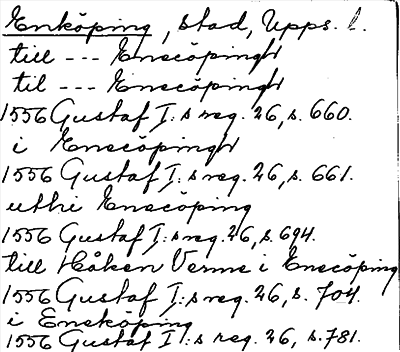 Enköping, stad, Upps. l.
till --- Enecöpingh
til --- Enecöpingh
1556 Gustaf I:s reg. 26, s. 660.
i Enecöpingh
1556 Gustaf I:s reg. 26, s. 661.
uthi Enecöping
1556 Gustaf I:s reg. 26, s. 694.
till Håken Verme i Enecöping
1556 Gustaf I:s reg. 26, s. 704.
i Eneköping
1556 Gustaf I:s reg. 26, s. 781.